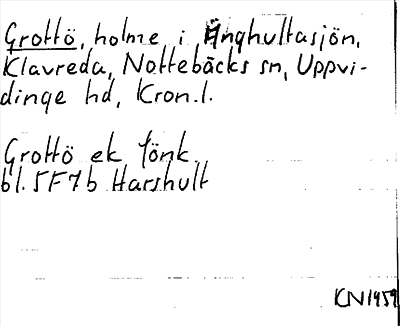 Grottö, holme i Änghultasjön,
Klavreda, Nottebäcks sn, Uppvi-
dinge hd, Kron.l.
Grottö ek fönk.
bl. 5F7b Harshult
KN1959